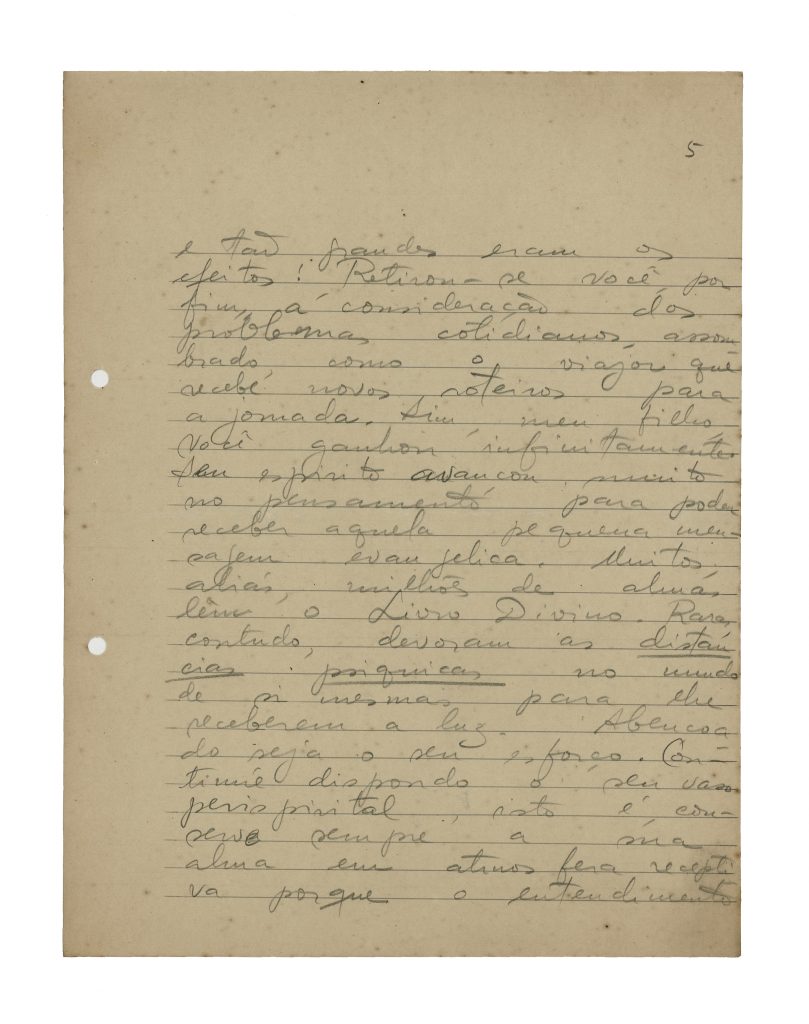 5
e tão grandes eram os
efeitos! Retirou-se você, por
fim, á consideração dos
problemas cotidianos, assom
brado, como o viajor que
recebe novos roteiros para
a jornada. Sim, meu filho,
você ganhou infinitamente.
Seu espirito avançou muito
no pensamento para poder
receber aquela pequena men-
sagem evangelica. Muitos,
aliás, milhões de almas
lêm o Livro Divino. Raras,
contudo, devoram as distân
cias psiquicas no mundo
de si mesmas para lhe
receberem a luz. Abençoa
do seja o seu esforço. Con-
tinúe dispondo o seu vaso
perispirital, isto é, con-
serve sempre a sua
alma em atmosfera recepti
va porque o entendimento